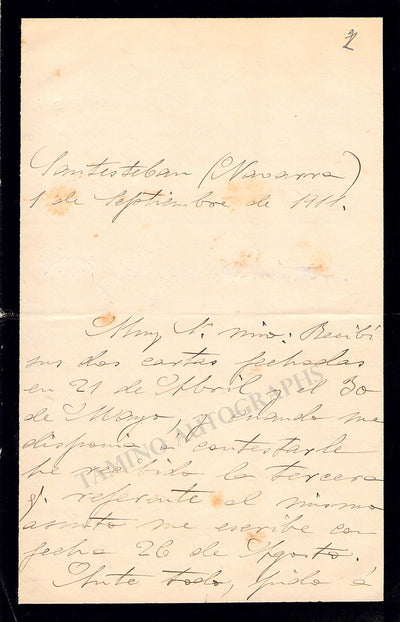 2
Santesteban (Navarra)
1 de Septiembre de 1911.
Muy Sr. mio: Recibí
sus dos cartas fechadas
en 21 de Abril y el 30
de Mayo, y cuando me
disponia a contestarle
he recibido la tercera
q. referente al mismo
asunto me escribe con
fecha 26 de Agosto.
Ante todo, pido á
TAMINO AUTOGRAPHS